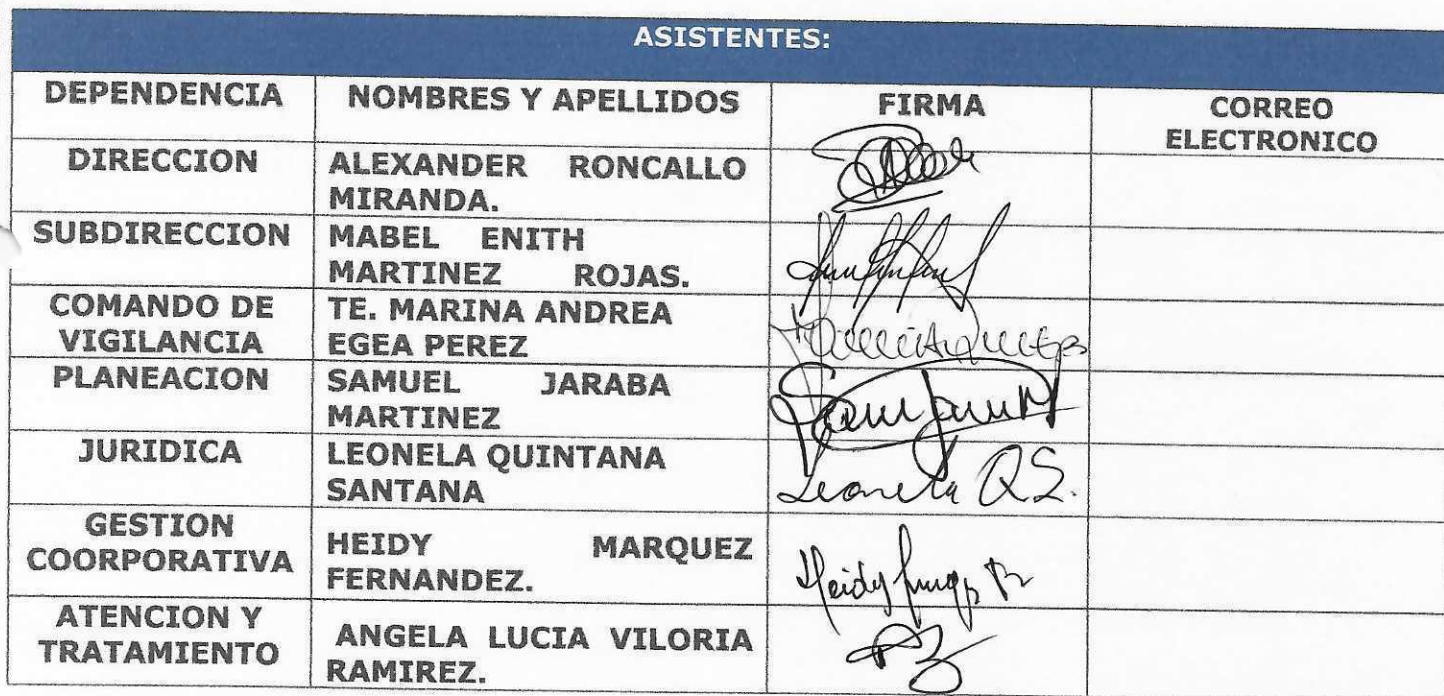 ASISTENTES:
DEPENDENCIA NOMBRES Y APELLIDOS FIRMA CORREO ELECTRONICO
DIRECCION ALEXANDER RONCALLO
MIRANDA.
SUBDIRECCION MABEL ENITH
MARTINEZ ROJAS.
COMANDO DE TE. MARINA ANDREA
VIGILANCIA EGEA PEREZ
PLANEACION SAMUEL JARABA
MARTINEZ
JURIDICA LEONELA QUINTANA
SANTANA Leonela Q S.
GESTION
COORPORATIVA HEIDY MARQUEZ
FERNANDEZ. Heidy
ATENCION Y
TRATAMIENTO ANGELA LUCIA VILORIA
RAMIREZ.